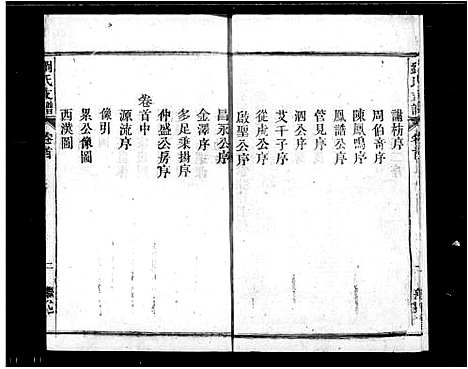 謝枋序
周伯奇序
陳鳳鳴序
鳳誥公序
管見序
泗公序
艾千子序
從虎公序
啟聖公序
昌永公序
金澤序
多足乘揚序
仲盛公房序
卷首中
源流序
像引
累公像圖
西漢圖
劉氏支譜
卷首
二